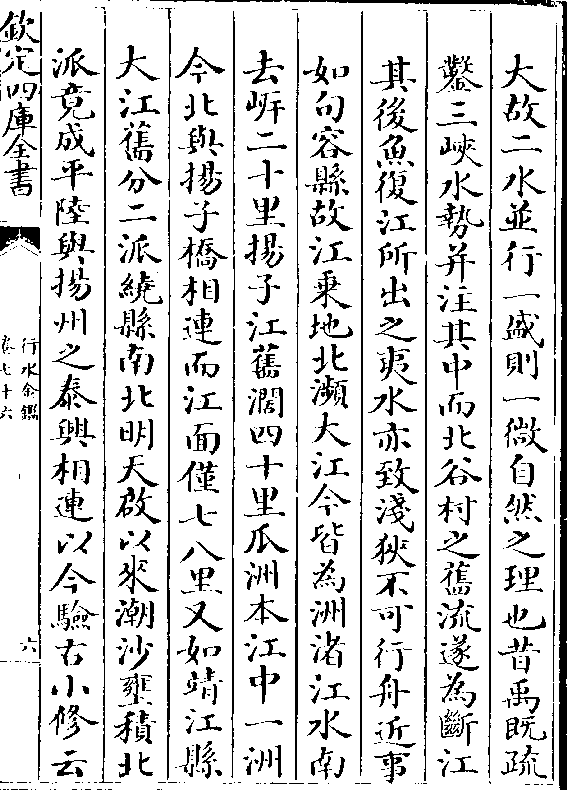 大故二水並行一盛則一微自然之理也昔禹既疏
鑿三峽水勢并注其中而北谷村之舊流遂為斷江
其後魚復江所出之夷水亦致淺狹不可行舟近事
如句容縣故江乗地北瀕大江今皆為洲渚江水南
去㟁二十里揚子江舊濶四十里瓜洲本江中一洲
今北與揚子橋相連而江面僅七八里又如靖江縣
大江舊分二派繞縣南北明天啟以來潮沙壅積北
派竟成平陸與揚州之泰興相連以今驗古小修云
欽定四庫全書
行水金鑑
卷七十六
六